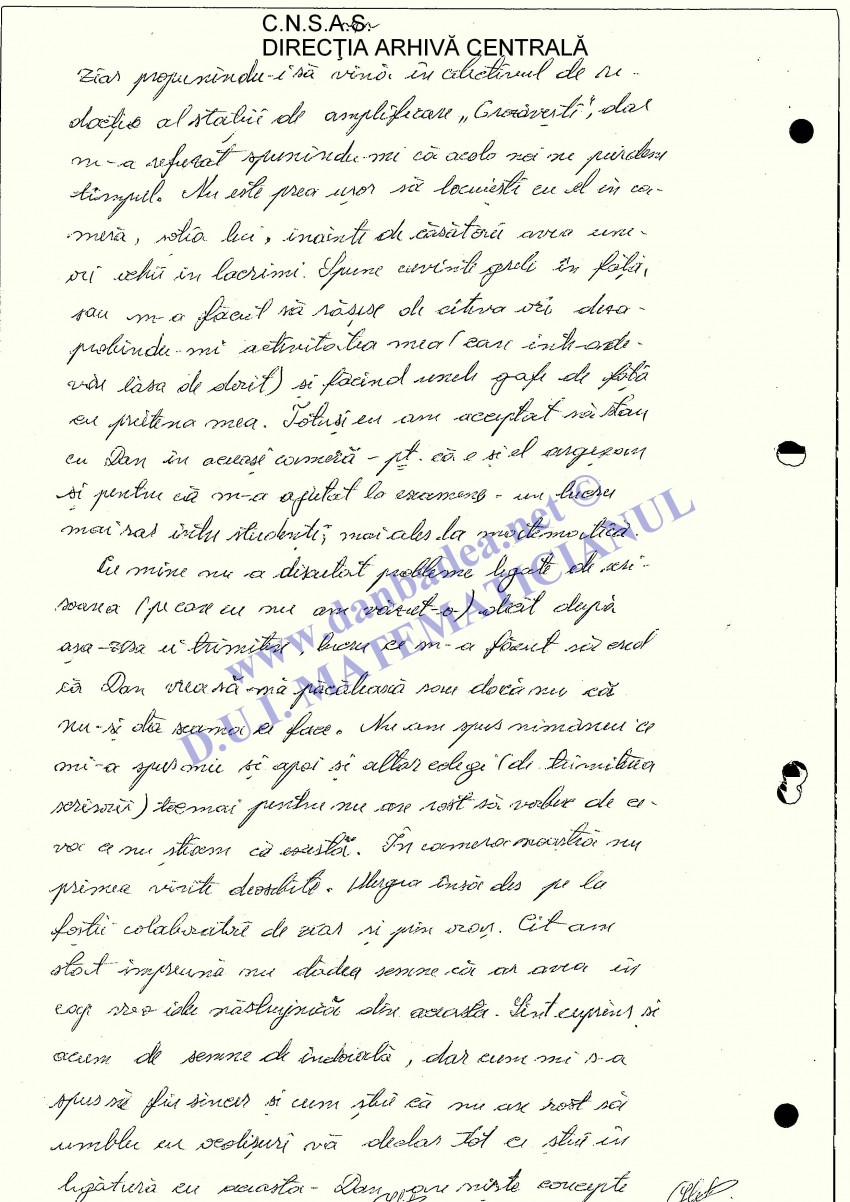 C.N.S.A.S.
DIRECŢIA ARHIVĂ CENTRALĂ
ziar propunindu-i să vină în colectivul de re-
dacție al stației de amplificare „Grozăvești”, dar
m-a refuzat spunindu-mi că acolo noi ne pierdem
timpul. Nu este prea ușor să locuiești cu el în ca-
meră, soția lui, înainte de căsătorie avea une-
ori ochii în lacrimi. Spune cuvinte grele în față,
sau m-a făcut să roșesc de cîteva ori deza-
probindu-mi activitatea mea (care într-ade-
văr lasă de dorit) și făcind unele gafe de față
cu prietena mea. Totuși eu am acceptat să stau
cu Dan în aceeași cameră - pt. că e și el argeșean
și pentru că m-a ajutat la examene - un lucru
mai rar între studenți, mai ales la matematică.
Cu mine nu a discutat probleme legate de scri-
soarea (pe care eu nu am văzut-o) decît după
așa-zisa ei trimitere, lucru ce m-a făcut să cred
că Dan vrea să mă păcălească sau dacă nu că
nu-și dă seama ce face. Nu am spus nimănui ce
mi-a spus mie și apoi și altor colegi (de trimiterea
scrisorii) tocmai pentru nu are rost să vorbesc de ce-
va ce nu știam că există. În camera noastră nu
primea vizite deosebite. Mergea însă des pe la
foștii colaboratori de ziar și prin oraș. Cît am
stat împreună nu dădea semne că ar avea în
cap vreo idee năstrușnică din aceasta. Sînt cuprins și
acum de semne de îndoială, dar cum mi s-a
spus să fiu sincer și cum știu că nu are rost să
umblu cu ocolișuri vă declar tot ce știu în
legătură cu aceasta - Dan are niște concepte
www.danbadea.net ©
D.U.I. MATEMATICIANUL